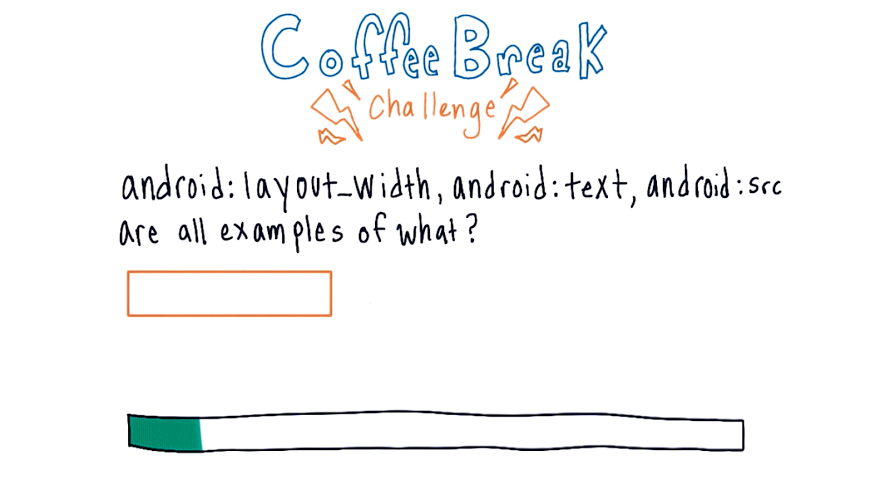 Coffee Break
Challenge
android:layout_width, android:text, android:src
are all examples of what?